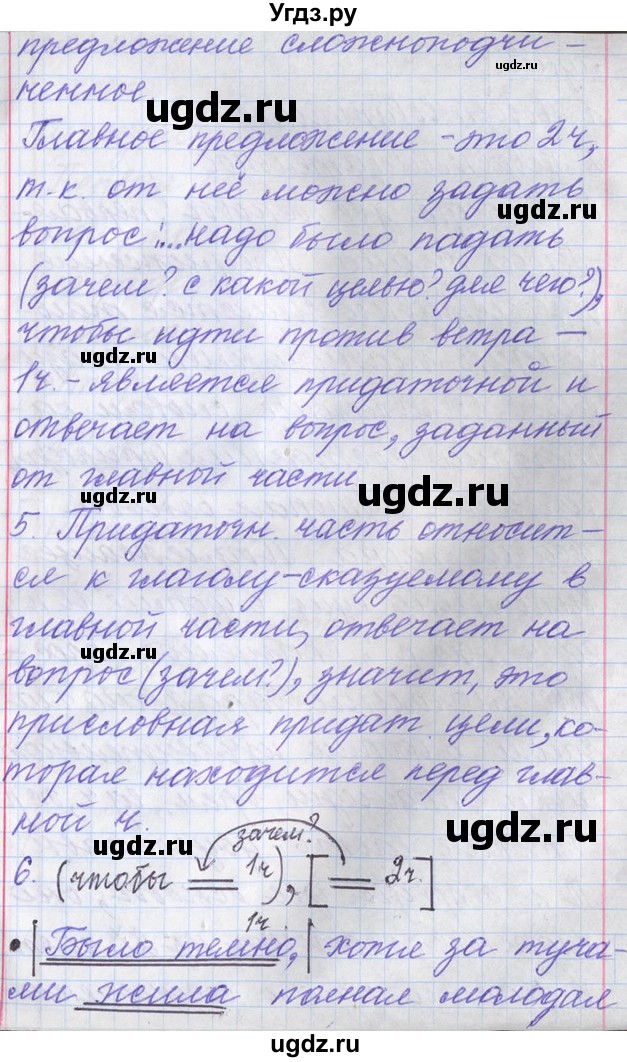 Угдз.ру
предложение сложноподчи-
ugdz.ru
ненное
ugdz.ru
Главное предложение - это 2ч,
ugdz.ru
т.к. от неё можно задать
ugdz.ru
вопрос: ...надо было падать
(зачем? с какой целью? для чего?),
чтобы идти против ветра –
ugdz.ru
1ч. - является придаточной и
отвечает на вопрос, заданный
от главной части
ugdz.ru
ugdz.ru
5. Придаточн. часть относит-
ся к глаголу-сказуемому в
главной части, отвечает на
ugdz.ru
вопрос (зачем?), значит, это
присловная придат. цели, ко-
ugdz.ru
торая находится перед глав-
ной ч.
зачем?
ugdz.ru
ugdz.ru
6. (чтобы 1ч), [ 2ч.]
1ч
• | Было темно, | хотя за туча-
ми жила полная молодая
ugdz.ru